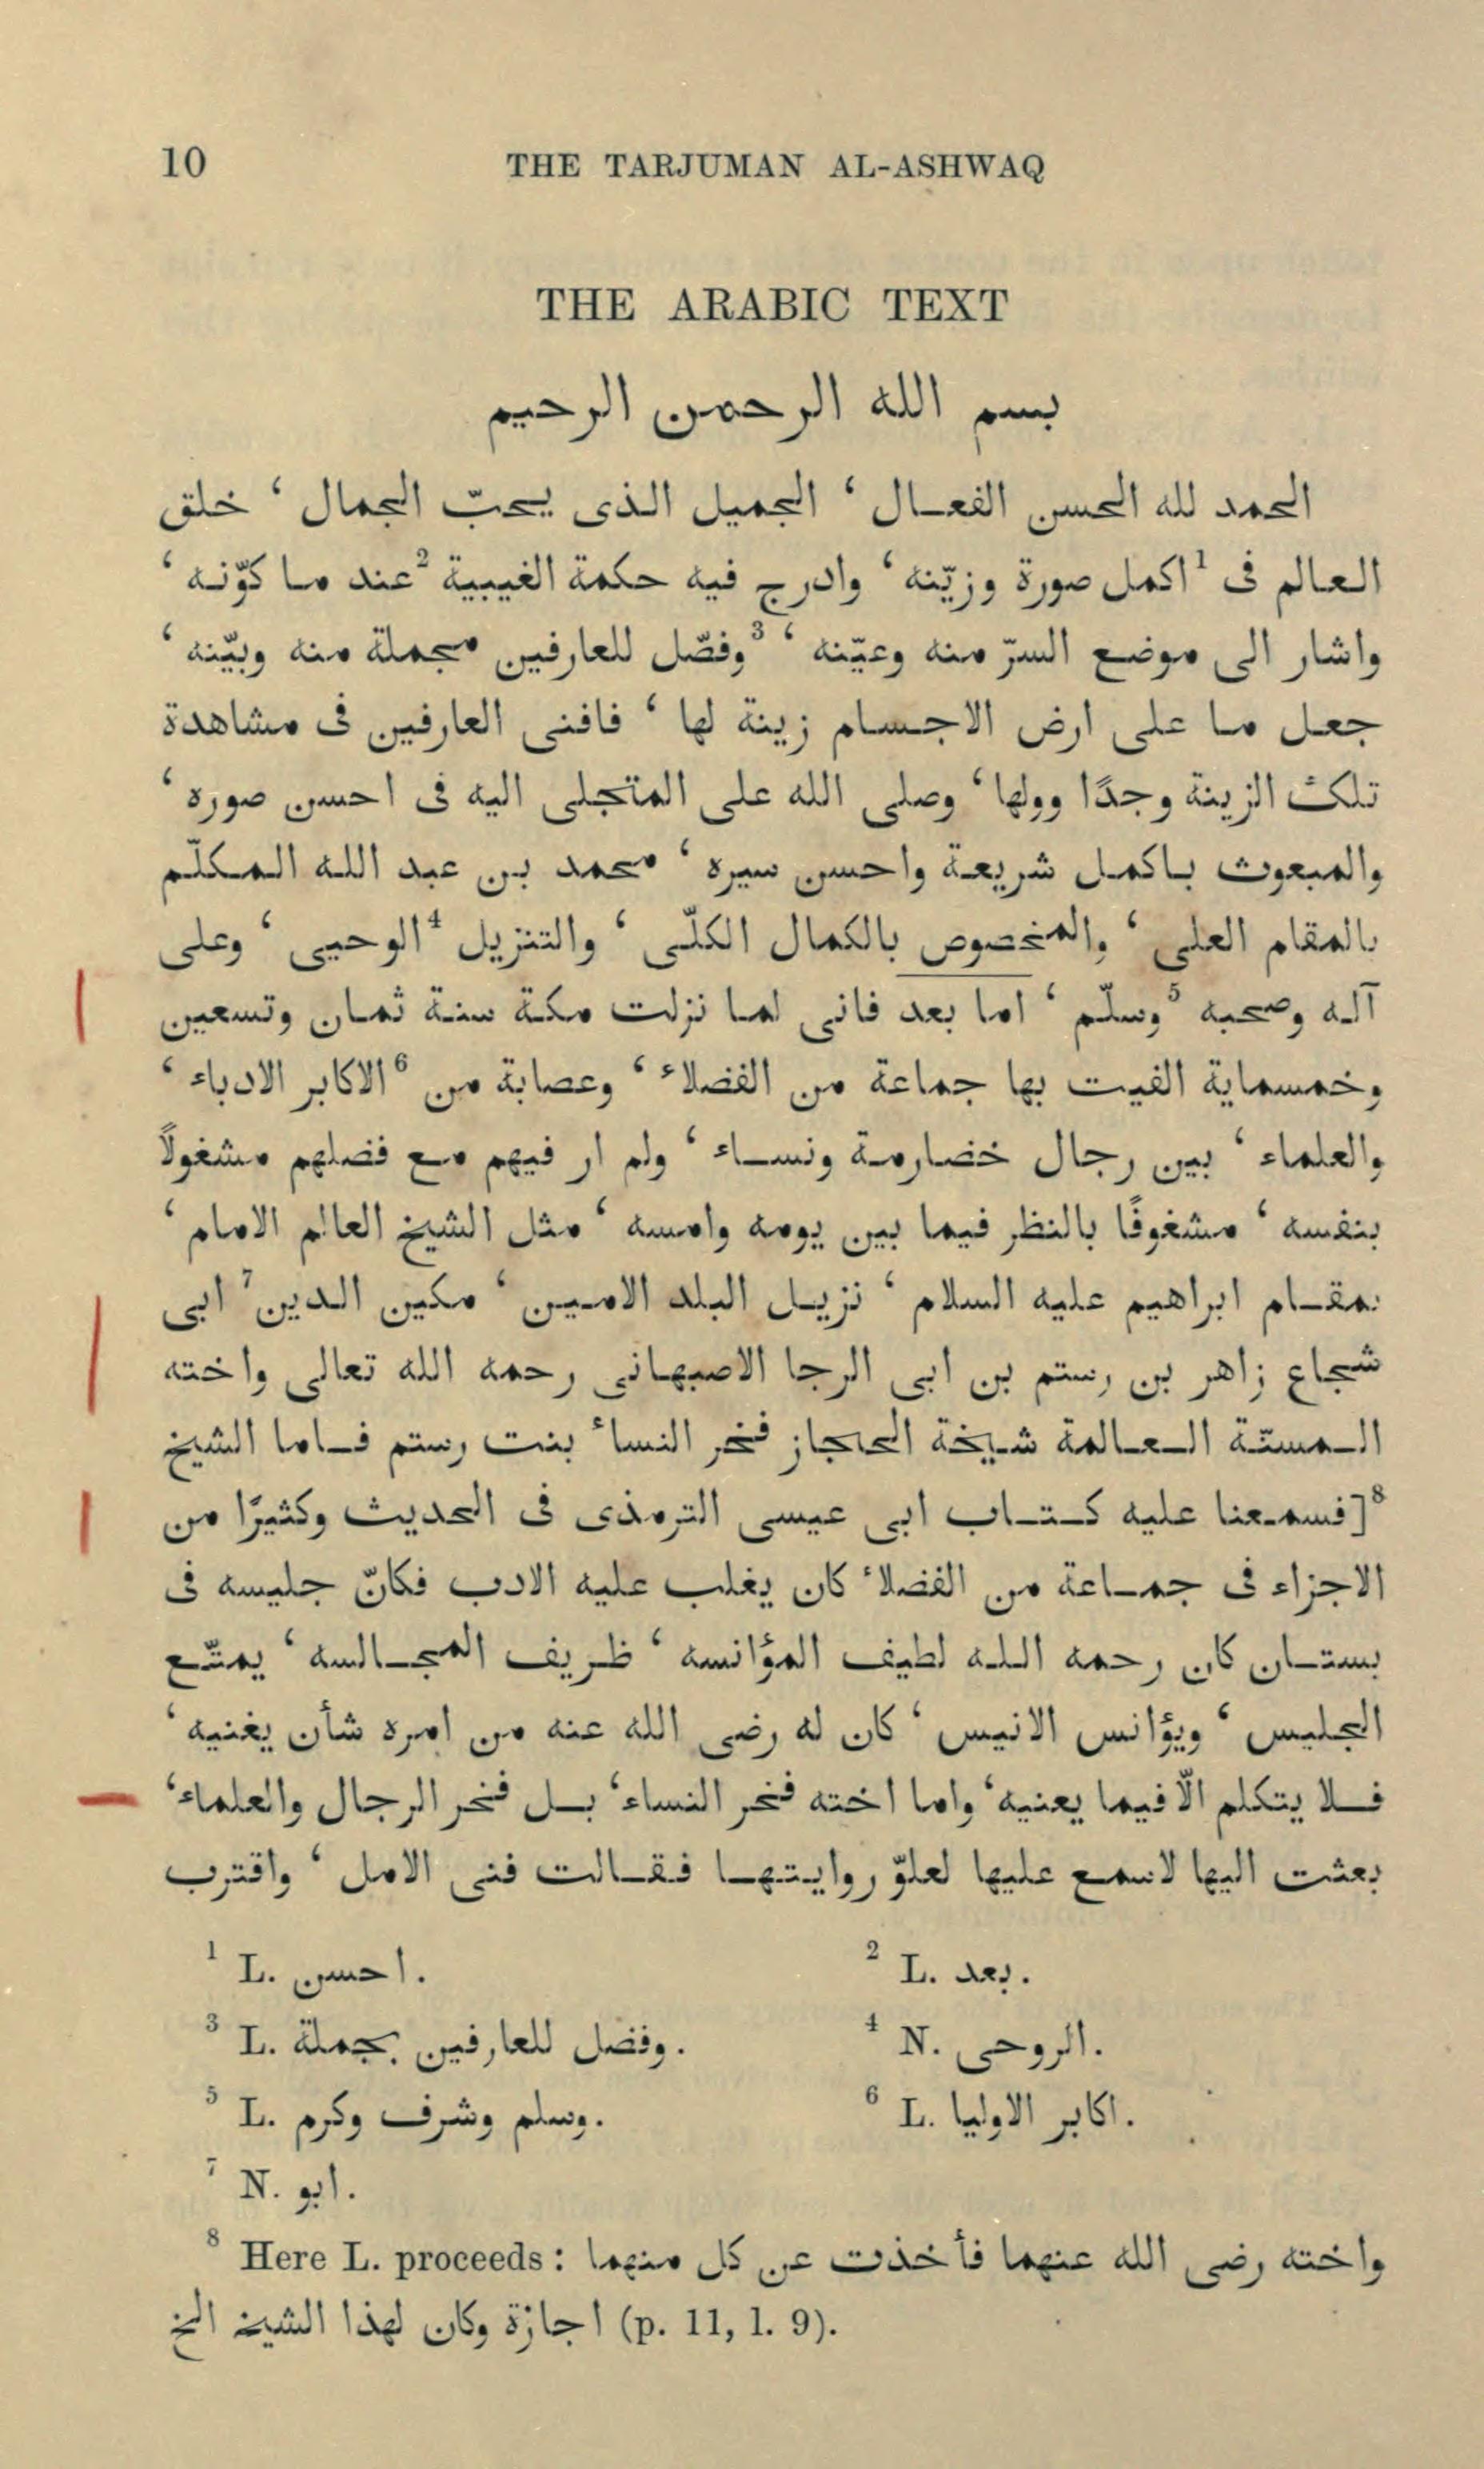 10 THE TARJUMAN AL-ASHWAQ
THE ARABIC TEXT
بسم الله الرحمن الرحيم
الحمد لله الحسن الفعال ، الجميل الذى يحبّ الجمال ، خلق
العالم فى ¹اكمل صورة وزيّنه ، وادرج فيه حكمة الغيبية ²عند ما كوّنه ،
واشار الى موضع السرّ منه وعيّنه ، ³وفصّل للعارفين مجملة منه وبيّنه ،
جعل ما على ارض الاجسام زينة لها ، فافنى العارفين فى مشاهدة
تلك الزينة وجدًا وولها ، وصلى الله على المتجلى اليه فى احسن صوره ،
والمبعوث باكمل شريعة واحسن سيره ، محمد بن عبد الله المكلّم
بالمقام العلى ، والمخصوص بالكمال الكلّى ، والتنزيل ⁴الوحيى ، وعلى
آله وصحبه ⁵وسلّم ، اما بعد فانى لما نزلت مكة سنة ثمان وتسعين
وخمسماية الفيت بها جماعة من الفضلاء ، وعصابة من ⁶الاكابر الادباء ،
والعلماء ، بين رجال خضارمة ونساء ، ولم ار فيهم مع فضلهم مشغولاً
بنفسه ، مشغوفًا بالنظر فيما بين يومه وامسه ، مثل الشيخ العالم الامام ،
بمقام ابراهيم عليه السلام ، نزيل البلد الامين ، مكين الدين ⁷ابى
شجاع زاهر بن رستم بن ابى الرجا الاصبهانى رحمه الله تعالى واخته
المسنّة العالمة شيخة الحجاز فخر النساء بنت رستم فاما الشيخ
⁸[فسمعنا عليه كتاب ابى عيسى الترمذى فى الحديث وكثيرًا من
الاجزاء فى جماعة من الفضلاء كان يغلب عليه الادب فكانّ جليسه فى
بستان كان رحمه الله لطيف المؤانسه ، ظريف المجالسه ، يمتّع
الجليس ، ويؤانس الانيس ، كان له رضى الله عنه من امره شأن يغنيه ،
فلا يتكلم الّا فيما يعنيه ، واما اخته فخر النساء ، بل فخر الرجال والعلماء ،
بعثت اليها لاسمع عليها لعلوّ روايتها فقالت فنى الامل ، واقترب
¹ L. احسن. ² L. بعد.
³ L. وفضل للعارفين بجملة. ⁴ N. الروحى.
⁵ L. وسلم وشرف وكرم. ⁶ L. اكابر الاوليا.
⁷ N. ابو.
⁸ Here L. proceeds: واخته رضى الله عنهما فأخذت عن كل منهما
اجازة وكان لهذا الشيخ الخ (p. 11, l. 9).